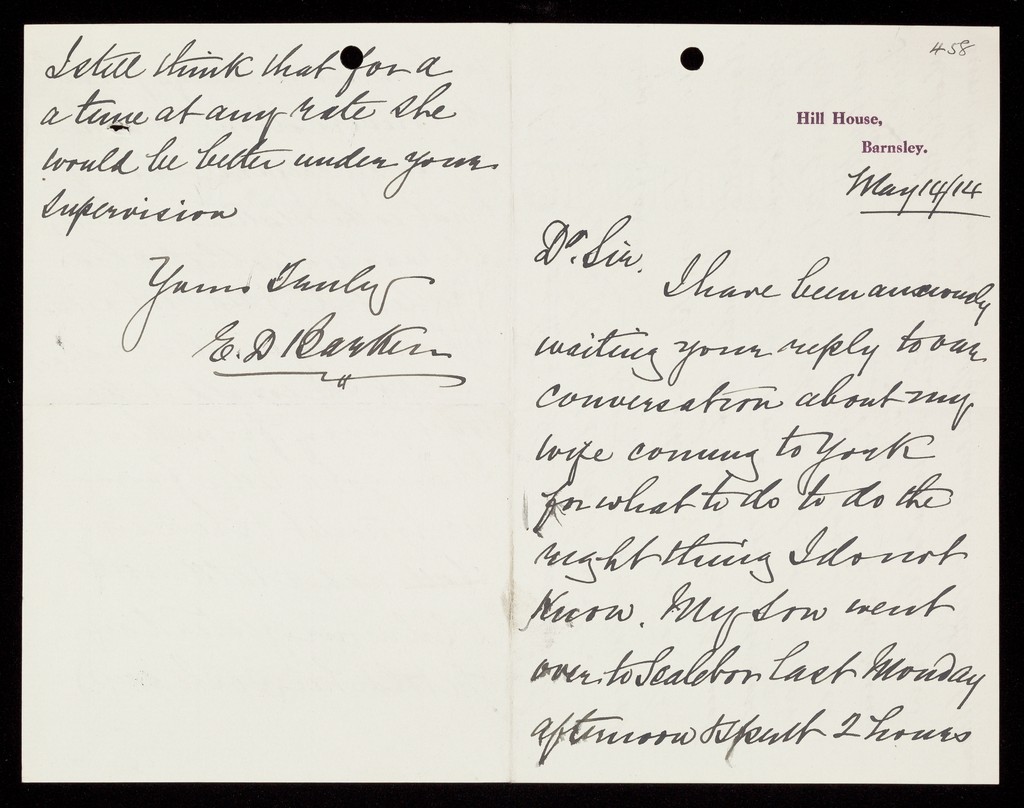 I still think that for a
a time at any rate she
would be better under your
supervision
Yours Truly
E. D Barker
458
Hill House,
Barnsley.
May 14/14
Dr. Sir.
I have been anxiously
waiting your reply to our
conversation about my
wife coming to York
for what to do to do the
right thing I do not
know. My son went
over to Scalebor last Monday
afternoon & spent 2 hours